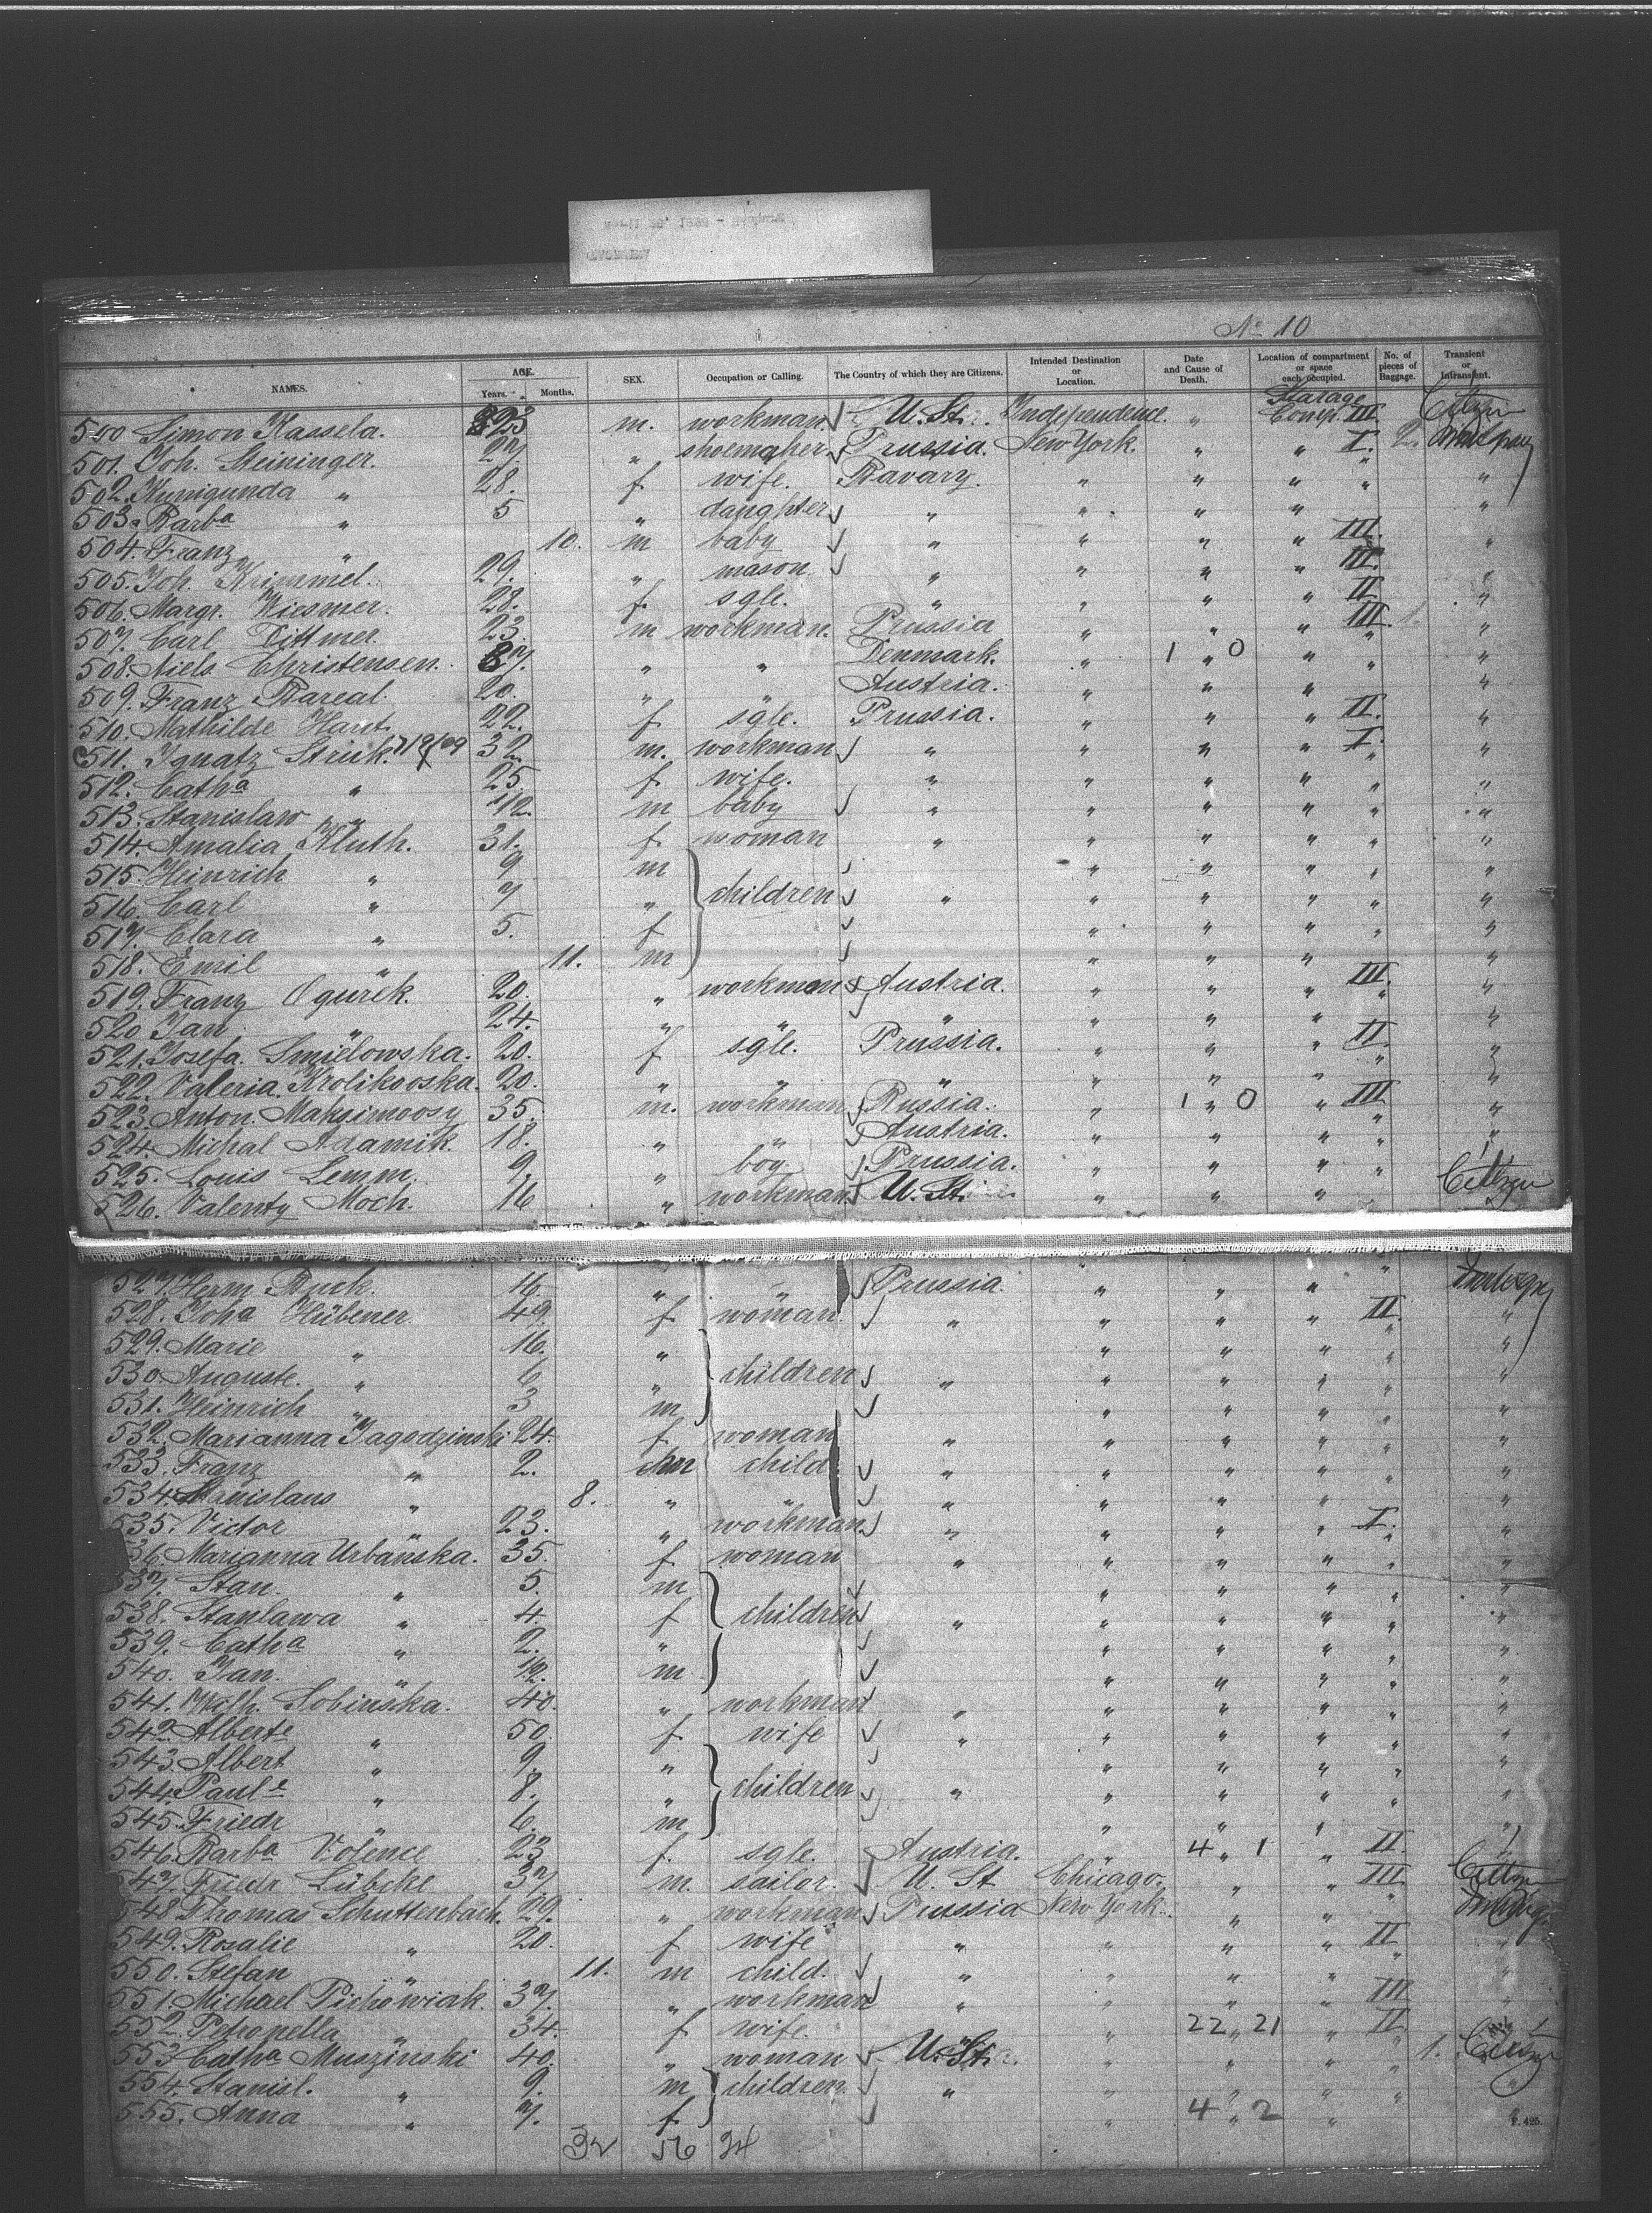 No 10
NAMES. AGE. Years. Months. SEX. Occupation or Calling. The Country of which they are Citizens. Intended Destination or Location. Date and Cause of Death. Location of compartment or space each occupied. No. of pieces of Baggage. Transient or Intransient.
500 Simon Kassela. 23 m. workman U. St. Independence. " Comp. III. Citizen
501. Joh. Steininger. 27 " shoemaker Prussia. New York. " " I. 2
502. Kunigunda " 28. f. wife. Bavary. " " " " "
503. Barba " 5 " daughter " " " " "
504. Franz " 10. m baby " " " " III. "
505. Joh. Krimmel. 29. " mason " " " " III. "
506. Margr. Wiesmer. 28. f. sgle. " " " " II "
507. Carl Dittmer 23. m workman. Prussia " " " III. 1. "
508. Niels Christensen. 87. " " Denmark. " 1 " 0 " " "
509. Franz Bareal 20. " " Austria. " " " "
510. Mathilde Haut. 22. f sgle. Prussia. " " " II. "
511. Ignatz Streik. 32. m. workman " " " " I. " "
512. Catha " 25 f wife. " " " " " "
513. Stanislaw " 1/2. m baby " " " " " "
514. Amalia Kluth. 31. f. woman " " " " " "
515. Heinrich " 9 m " " " " "
516. Carl " 7 " children " " " " " "
517. Clara " 5. f " " " " "
518. Emil " 11. m " " " "
519. Franz Ogurek. 20. " workman Austria. " " " III. " "
520 Jan " 24. " " " " " " "
521. Josefa. Smielowska. 20. f sgle. Prussia. " " " II. " "
522. Valeria. Krolikooska. 20. " " " " " " "
523. Anton. Maksimoosy 35. m. workman Russia. " 1 " 0 " III " "
524. Michal Adamik. 18. " " Austria. " " " " "
525. Louis Lemm. 9. " boy Prussia. " " " "
526. Valenty Moch. 16 " workman. U. St. " " " Citizen
527. Herm Buck. 16. " " Prussia. " " " "
528. Joha Hübener 49. f. woman. " " " " II. " "
529. Marie " 16. " " " " " "
530. Auguste. " 6 " children " " " " " "
531. Heinrich " 3 m " " " " "
532. Marianna Jagodzinski 24. f. woman " " " " " "
533. Franz " 2. m child " " " " " "
534. Stanislaus " 8. " " " " " " " "
535. Victor " 23. " workman. " " " " I. " "
536. Marianna Urbanska. 35. f. woman " " " " " "
537. Stan. " 5. m " " " " "
538. Stanlawa " 4. f children " " " " " "
539. Catha " 2. " " " " " "
540. Jan. " 1/2. m " " " " "
541. Wilh. Sobinska. 40. " workman " " " " " "
542 Alberte " 50. f. wife " " " " " "
543. Albert " 9. " " " " " "
544. Paule " 8. " children " " " " " "
545. Friedr " 6. m " " " "
546. Barba Volence 23 f. sgle. Austria. " 4 " 1 " II "
547. Friedr Lübcke 37 m. sailor. U. St Chicago. " " III Citizen
548 Thomas Schuttenbach. 29. " workman Prussia New York. " " "
549. Rosalie " 20. f wife " " " " II " "
550. Stefan " 11. m child. " " " " "
551. Michael Pichowiak. 37. " workman " " " " III "
552. Petronella " 34. f wife. " " 22 " 21 " II "
553 Catha Muszinski 40. " woman U. St. " " " " 1. Citizen
554. Stanisl. " 9. m children. " " " " " "
555. Anna " 7. f " 4 " 2 " "
F. 425.
32 56 24